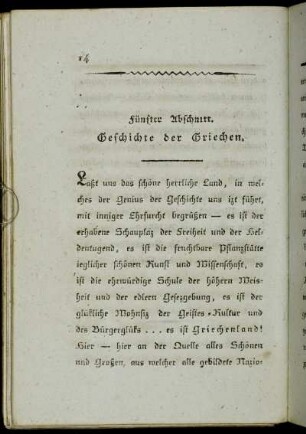 14
Fünfter Abschnitt.
Geschichte der Griechen.
Laßt uns das schöne herrliche Land, in wel-
ches der Genius der Geschichte uns izt führt,
mit inniger Ehrfurcht begrüßen — es ist der
erhabene Schauplaz der Freiheit und der Hel-
dentugend, es ist die fruchtbare Pflanzstätte
ieglicher schönen Kunst und Wissenschaft, es
ist die ehrwürdige Schule der höhern Weis-
heit und der edlern Gesezgebung, es ist der
glükliche Wohnsiz der Geistes-Kultur und
des Bürgerglüks . . . es ist Griechenland!
Hier — hier an der Quelle alles Schönen
und Großen, aus welcher alle gebildete Nazio-